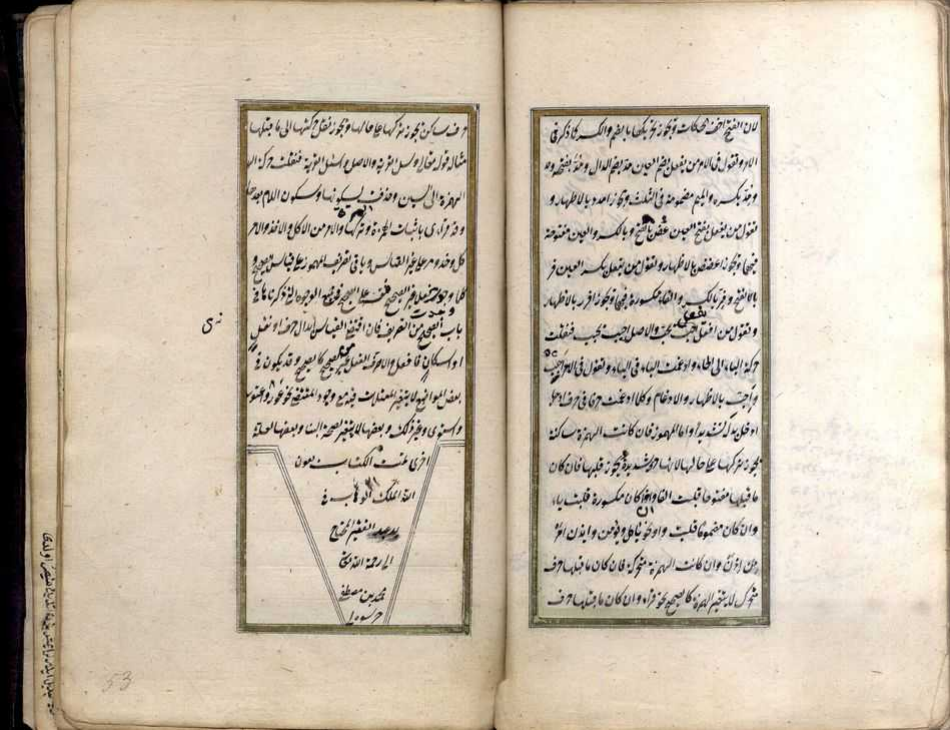 لان الفتح اخف الحركات وتجوز تحريكها بالضم والكسر كما ذكر فى
الامر وتقول فى الامر من يفعل بضم العين مد بضم الدال و مد بفتحه و مد
و مد بكسره والميم مضمومة فى الثلث وتجوز امدد بالاظهار و
تقول من يفعل بفتح العين عض بالفتح و بالكسر والعين مفتوحة
فيهما وتجوز اعضض بالاظهار وتقول من يفعل بكسر العين فر
بالفتح و فر بالكسر والفاء مكسورة فيهما وتجوز افرر بالاظهار
وتقول من افعل يفعل احب يحب والاصل احبب يحبب فنقلت
حركة الباء الى الحاء وادغمت الباء فى الباء وتقول فى الامر احب
و احبب بالاظهار والادغام وكلما ادغمت حرفا فى حرف
ادخل بدله تشديدا واما المهموز فان كانت الهمزة ساكنة
تجوز تركها على حالها وتجوز قلبها فان كان
ما قبلها مفتوحا قلبت الفا وان كان مكسورة قلبت ياء
وان كان مضموما قلبت واوا نحو ياكل ويومن وايذن امر
من اذن وان كانت الهمزة متحركة فان كان ما قبلها حرف
متحرك لا يتغير الهمزة كالصحيح نحو قرأ وان كان ما قبلها حرف
حرف ساكن تجوز تركها على حالها وتجوز نقل حركتها الى ما قبلها
مثاله قوله تعالى وسل القرية والاصل واسئل القرية فنقلت حركة
الهمزة الى السين وحذفت لسكونها وسكون اللام بعدها
وقد قرئ باثبات الهمزة وتركها والامر من الاكل والاخذ والامر
كل وخذ ومر على غير القياس وباقى تصريف المهموز على قياس الصحيح و
كلما وجدت فعلا غير الصحيح فقس على الصحيح فى جميع الوجوه التى ذكرناها فى
باب الصحيح من التصريف فان اقتضى القياس ابدال حرف او نقل
او اسكان فافعل والا صرف الفعل غير الصحيح كالصحيح وقد يكون فى
بعض المواضع لا يتغير المعتلات فيه مع وجود المقتضى نحو عور واعتور
واستوى وغير ذلك وبعضها لا يتغير لصحة البناء وبعضها لعلة
اخرى تمت الكتاب بعون
الله الملك الوهاب فى
يد عبد الفقير المحتاج
الى رحمة الله
محمد بن مصطفى
53